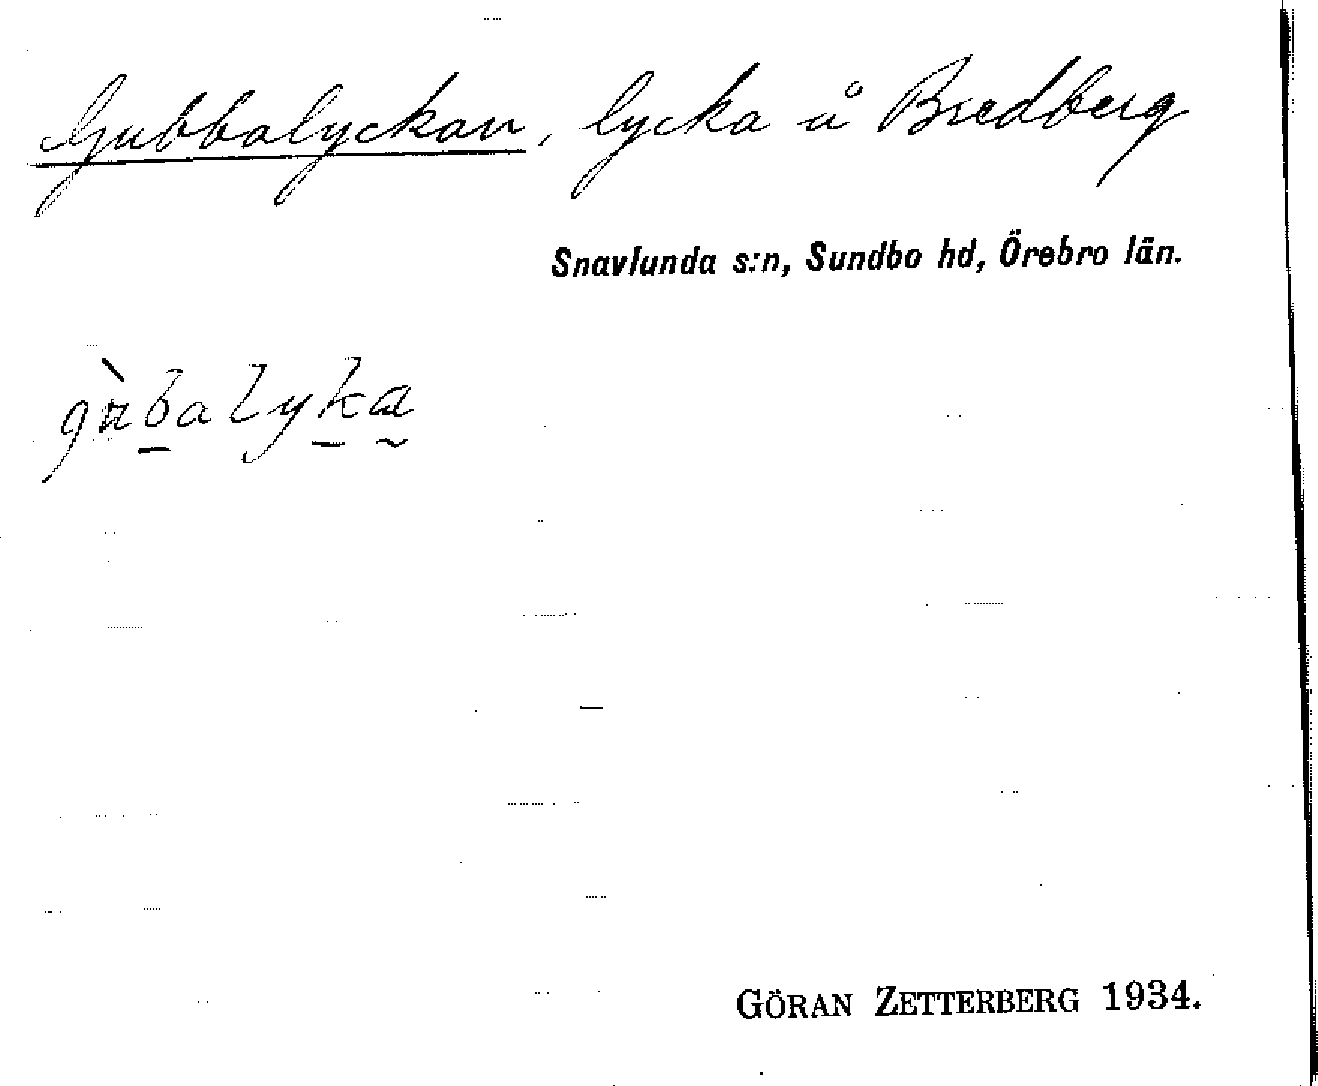 Gubbalyckan, lycka å Bredberg
Snavlunda s:n, Sundbo hd, Örebro län.
gu̇̀balyka
GÖRAN ZETTERBERG 1934.